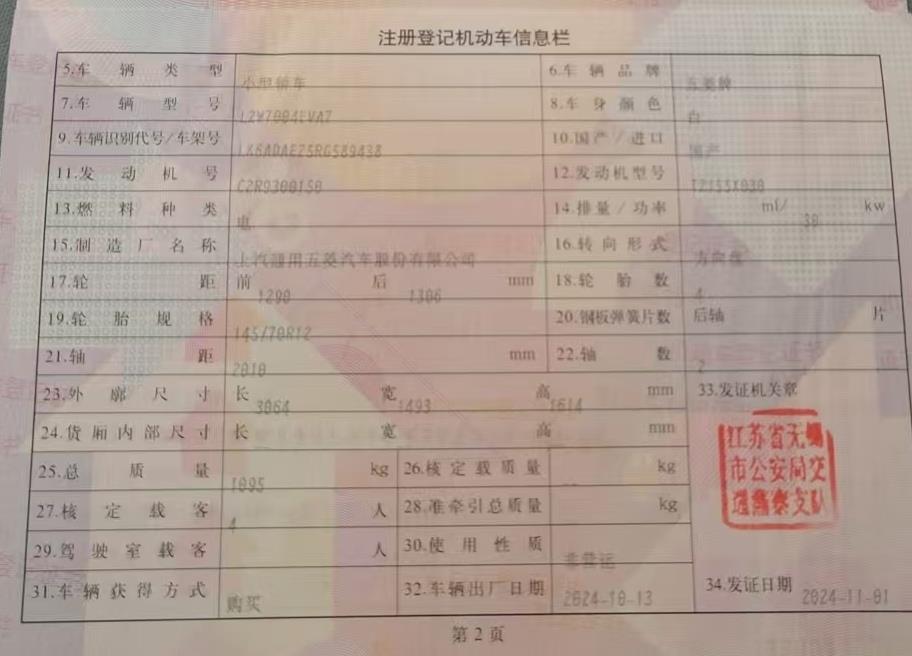 注册登记机动车信息栏
5.车辆类型 小型轿车 6.车辆品牌 五菱牌
7.车辆型号 LZW7004EVA7 8.车身颜色 白
9.车辆识别代号/车架号 LK6ADAE25RG589438 10.国产/进口 国产
11.发动机号 C2R9300150 12.发动机型号 TZ155X030
13.燃料种类 电 14.排量/功率 ml/ 30 kw
15.制造厂名称 上汽通用五菱汽车股份有限公司 16.转向形式 方向盘
17.轮距 前 1290 后 1306 mm 18.轮胎数 4
19.轮胎规格 145/70R12 20.钢板弹簧片数 后轴 片
21.轴距 2010 mm 22.轴数 2
23.外廓尺寸 长 3064 宽 1493 高 1614 mm 33.发证机关章
24.货厢内部尺寸 长 宽 高 mm
江苏省无锡
市公安局交
通警察支队
25.总质量 1095 kg 26.核定载质量 -- kg
27.核定载客 4 人 28.准牵引总质量 kg
29.驾驶室载客 人 30.使用性质 非营运
31.车辆获得方式 购买 32.车辆出厂日期 2024-10-13 34.发证日期 2024-11-01
第2页